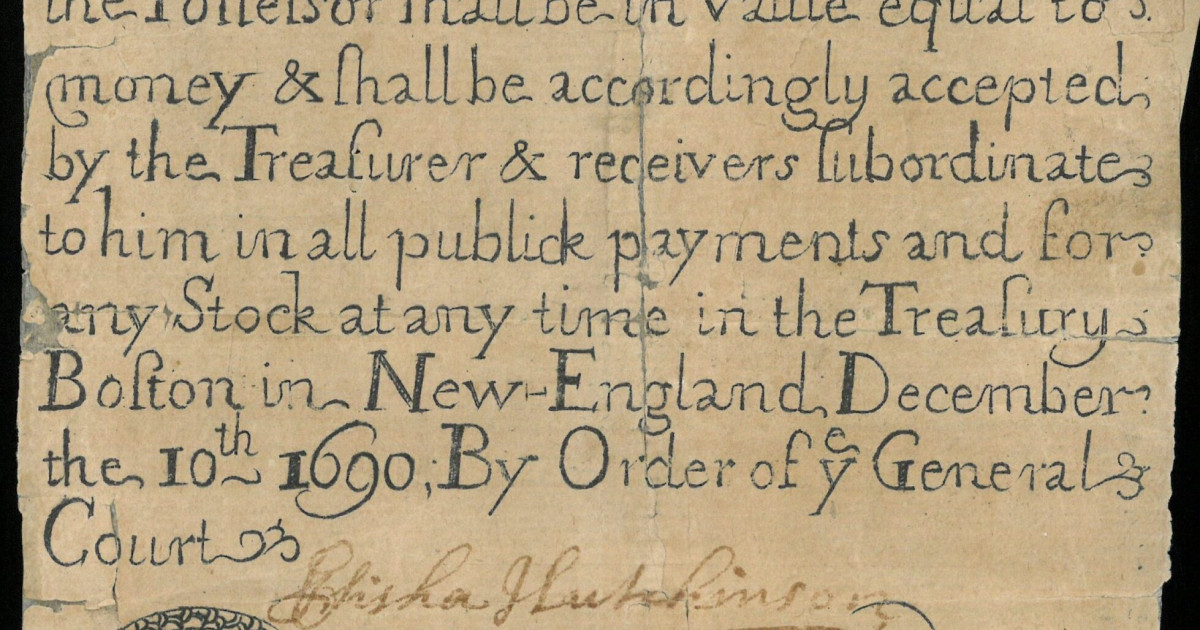 the Poſſeſsor ſhall be in value equal to
money & ſhall be accordingly accepted
by the Treaſurer & receivers ſubordinate
to him in all publick payments and for
any Stock at any time in the Treaſury
Boſton in New-England, December
the 10th 1690; By Order of ye General
Court
Elisha Hutchinson